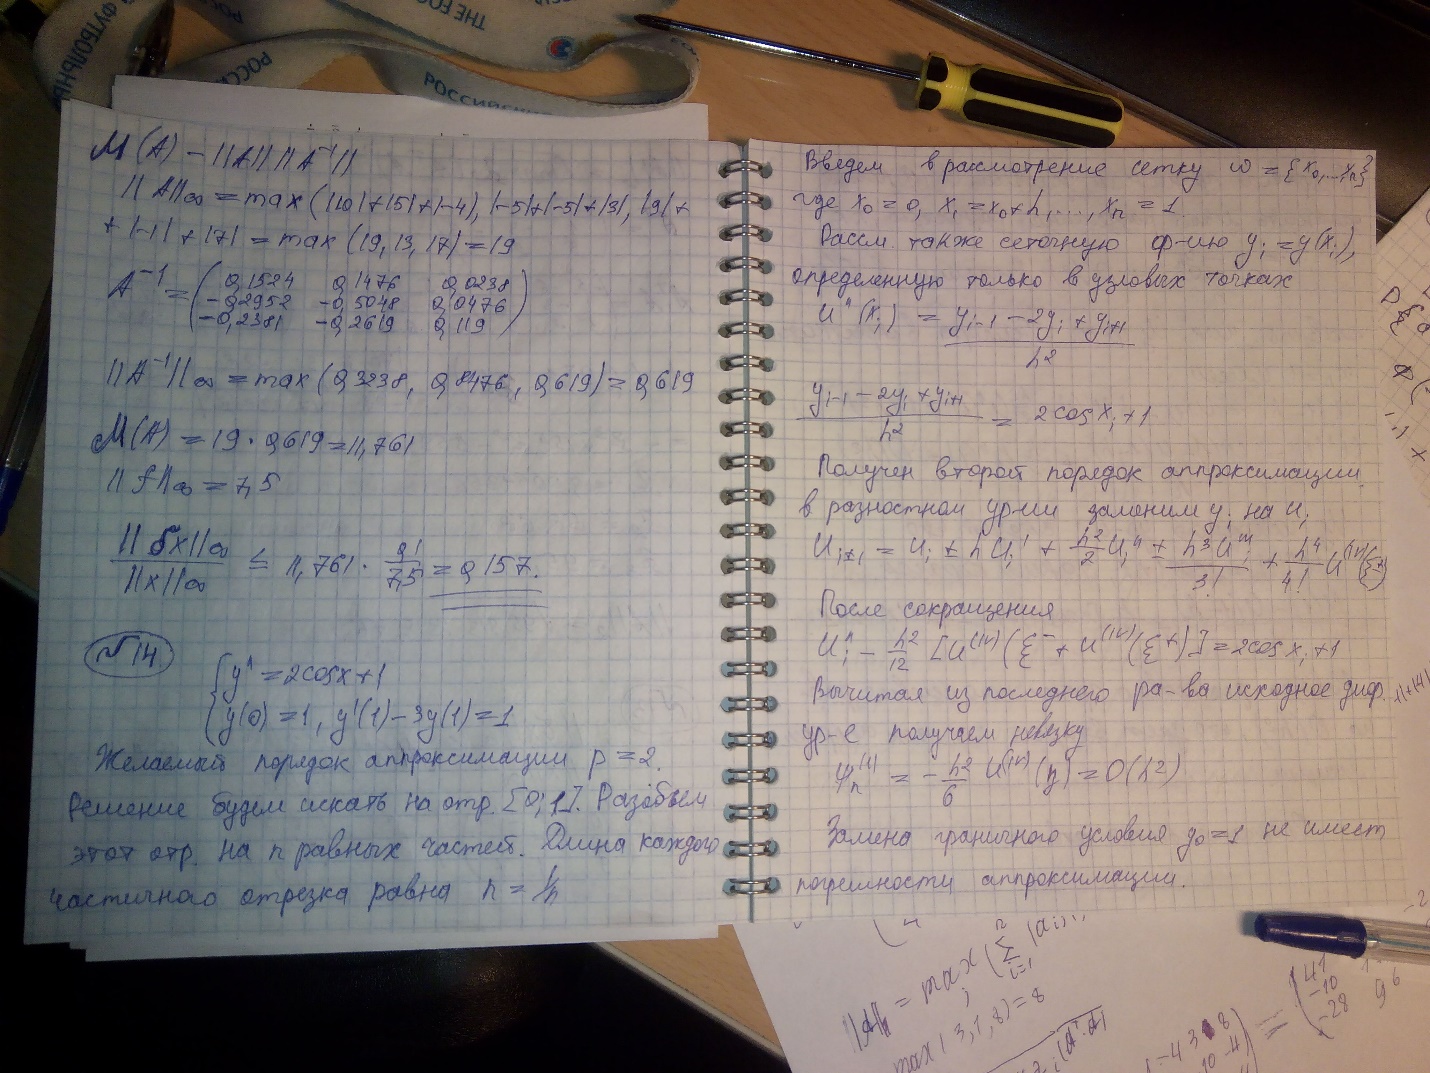 THE FOO
РОССИ
ФУТБОЛЬНЫ
РОССИЙ
РОССИЙСКИ
M(A) - ||A|| ||A⁻¹||
||A||∞ = max (|10|+|5|+|-4|, |-5|+|-5|+|3|, |9|+
+ |-1| + |7| = max (19, 13, 17) = 19
A⁻¹ = ( 0,1524 0,1476 0,0238
-0,2952 -0,5048 0,0476
-0,2381 -0,2619 0,119 )
||A⁻¹||∞ = max (0,3238, 0,8476, 0,619) = 0,619
M(A) = 19 · 0,619 = 11,761
||f||∞ = 7,5
||δx||∞ / ||x||∞ ≤ 11,761 · 0,1/7,5 = 0,157.
№14
{ y'' = 2cosx + 1
y(0) = 1, y'(1) - 3y(1) = 1
Желаемый порядок аппроксимации p = 2.
Решение будем искать на отр. [0; 1]. Разобьем
этот отр. на n равных частей. Длина каждого
частичного отрезка равна h = 1/n
Введем в рассмотрение сетку ω = {x₀,...,xₙ}
где x₀ = 0, x₁ = x₀ + h, ..., xₙ = 1.
Рассм. также сеточную ф-ию yᵢ = y(xᵢ),
определенную только в узловых точках
u''(xᵢ) = (yᵢ₋₁ - 2yᵢ + yᵢ₊₁) / h²
(yᵢ₋₁ - 2yᵢ + yᵢ₊₁) / h² = 2cosxᵢ + 1
Получен второй порядок аппроксимации.
в разностном ур-ии заменим yᵢ на uᵢ
uᵢ±₁ = uᵢ ± huᵢ' + h²/2 uᵢ'' ± h³u'''/3! + h⁴/4! u⁽ᴵⱽ⁾(ξ±)
После сокращения
uᵢ'' - h²/12 [u⁽ᴵⱽ⁾(ξ⁻ + u⁽ᴵⱽ⁾(ξ⁺)] = 2cosxᵢ + 1
Вычитая из последнего ра-ва исходное диф.
ур-е получаем невязку
ψₙ⁽¹⁾ = - h²/6 u⁽ᴵⱽ⁾(η) = O(h²)
Замена граничного условия y₀ = 1 не имеет
погрешности аппроксимации.
||A|| = max (Σ
max(3, 1, 8) = 8